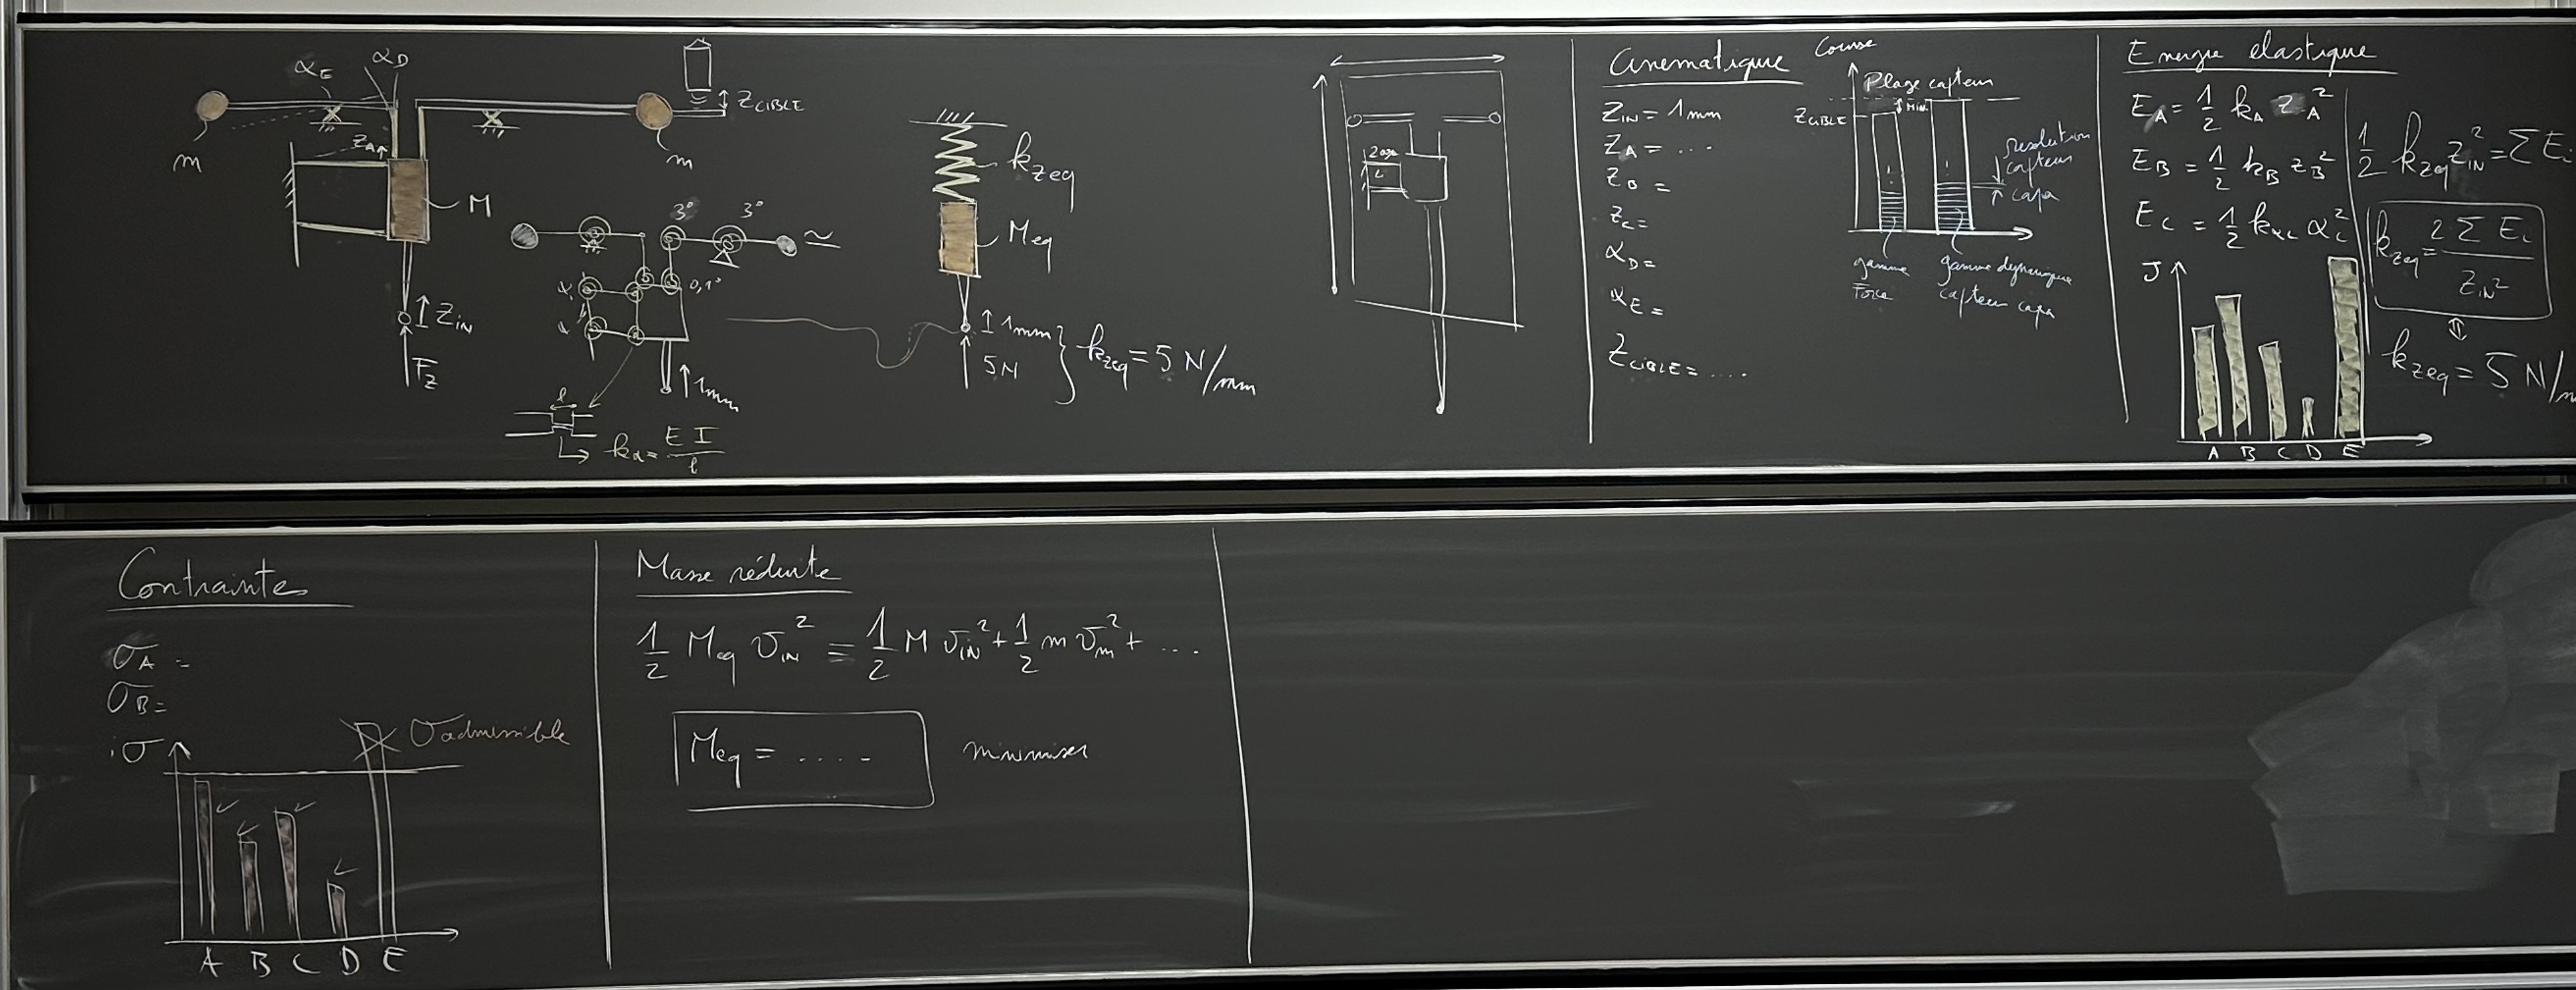 α_E
α_D
Z_CIBLE
m
Z_A
m
M
Z_IN
F_Z
3°
3°
0,1°
1mm
l
k_α = E I / l
≃
k_zeq
M_eq
1mm
5N
k_zeq = 5 N/mm
Cinématique
Z_IN = 1mm
Z_A = ...
Z_B =
Z_C =
α_D =
α_E =
Z_CIBLE = ....
Course
Plage capteur
Z_CIBLE
Min.
résolution
capteur
capa
gamme
Force
gamme dynamique
capteur capa
Energie élastique
E_A = 1/2 k_A z_A²
E_B = 1/2 k_B z_B²
E_C = 1/2 k_αc α_c²
1/2 k_zeq z_IN² = Σ E_i
k_zeq = 2 Σ E_i / Z_IN²
⇕
k_zeq = 5 N/m
J
A B C D E
Contraintes
σ_A =
σ_B =
σ
σ admissible
A B C D E
Masse réduite
1/2 M_eq v_IN² = 1/2 M v_IN² + 1/2 m v_m² + ...
M_eq = ....
minimiser